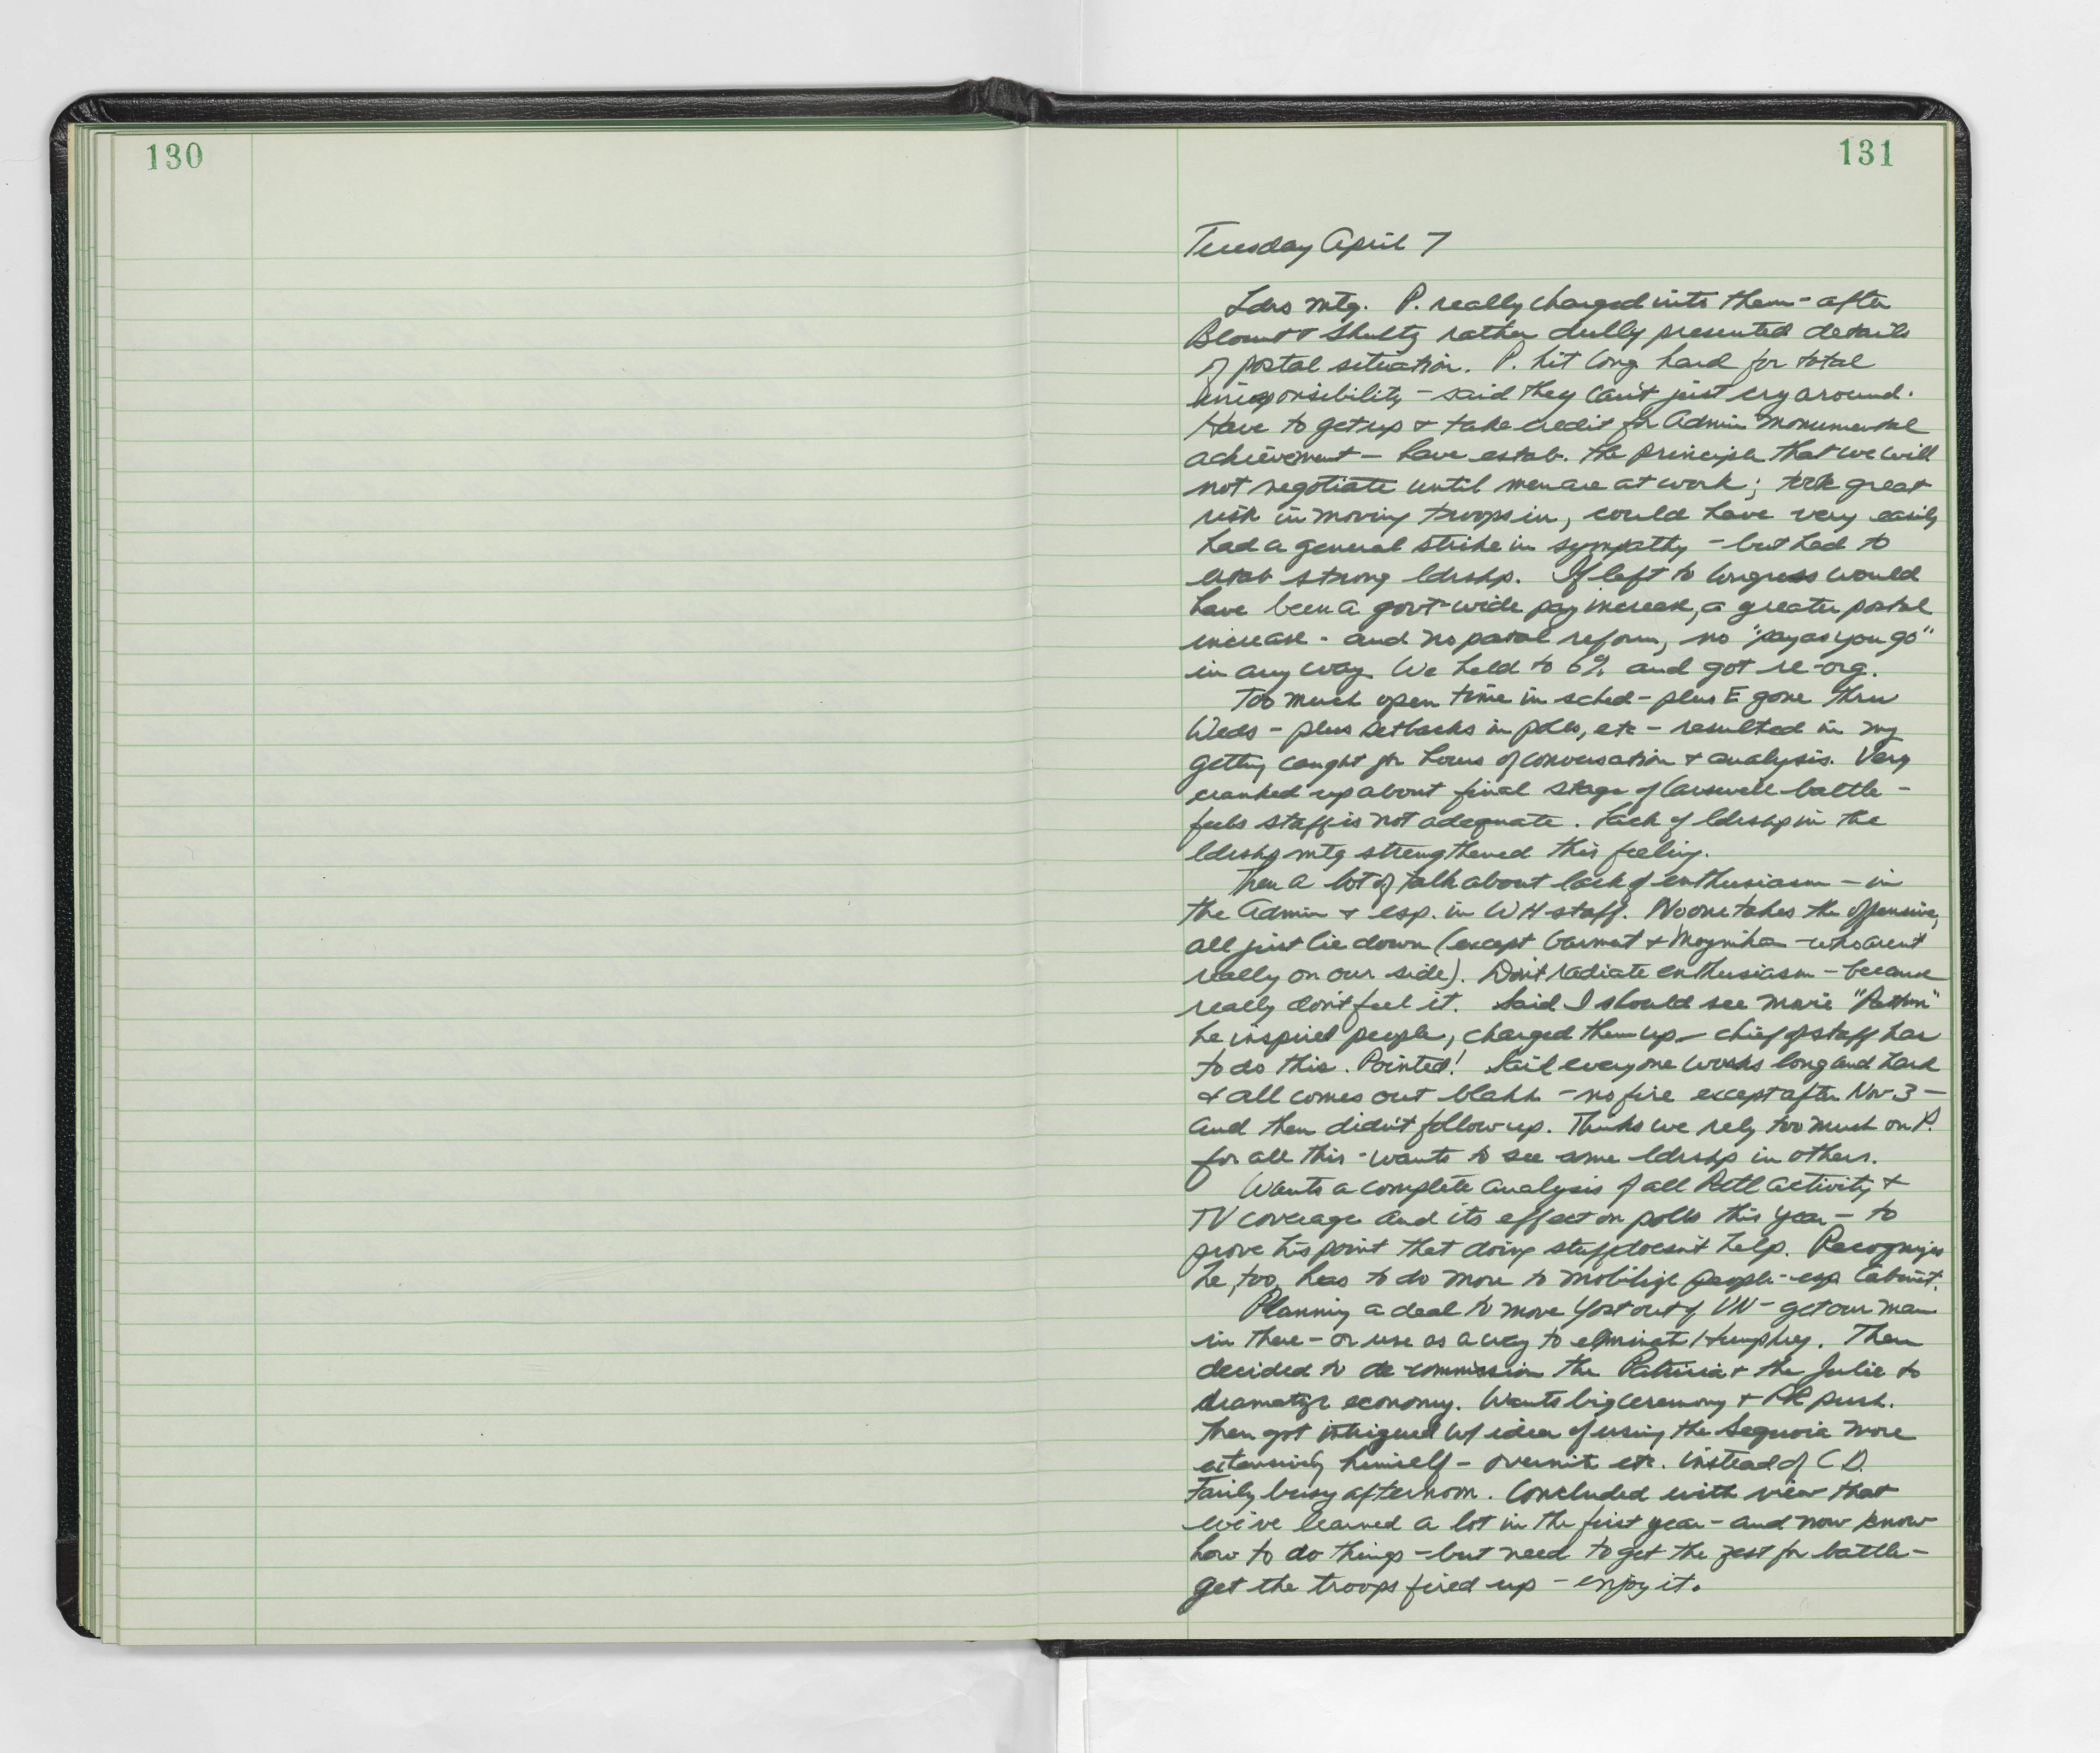 130
131
Tuesday April 7
Ldrs mtg. P. really charged into them - after
Blount & Shultz rather dully presented details
of postal situation. P. hit Cong hard for total
irresponsibility - said they can't just cry around.
Have to get up & take credit for Admin monumental
achievement - have estab. the principle that we will
not negotiate until men are at work; took great
risk in moving troops in, could have very easily
had a general strike in sympathy - but had to
estab strong ldrshp. If left to Congress would
have been a govt-wide pay increase, a greater postal
increase - and no postal reform, no "pay as you go"
in any way. We held to 6% and got re-org.
Too much open time in sched - plus E gone thru
Weds - plus setbacks in polls, etc - resulted in my
getting caught for hours of conversation & analysis. Very
cranked up about final stage of Carswell battle -
feels staff is not adequate. Lack of ldrshp in the
ldrshp mtg strengthened this feeling.
Then a lot of talk about lack of enthusiasm - in
the Admin & esp. in WH staff. No one takes the offensive,
all just lie down (except Garment & Moynihan - who aren't
really on our side). Don't radiate enthusiasm - because
really don't feel it. Said I should see movie "Patton"
he inspired people, charged them up - chief of staff has
to do this. Pointed! Said everyone works long and hard
& all comes out blahh - no fire except after Nov 3 -
and then didn't follow up. Thinks we rely too much on P.
for all this - wants to see some ldrshp in others.
Wants a complete analysis of all Pretl activity &
TV coverage and its effect on polls this year - to
prove his point that doing stuff doesn't help. Recognizes
he, too, has to do more to mobilize people - esp Cabinet.
Planning a deal to move Yost out of UN - get our man
in there - or use as a way to eliminate Humphrey. Then
decided to de-commission the Patricia & the Julie to
dramatize economy. Wants big ceremony & PR push.
Then got intrigued w/ idea of using the Sequoia more
extensively himself - overnite etc. instead of C.D.
Fairly busy afternoon. Concluded with view that
we've learned a lot in the first year - and now know
how to do things - but need to get the zest for battle -
get the troops fired up - enjoy it.